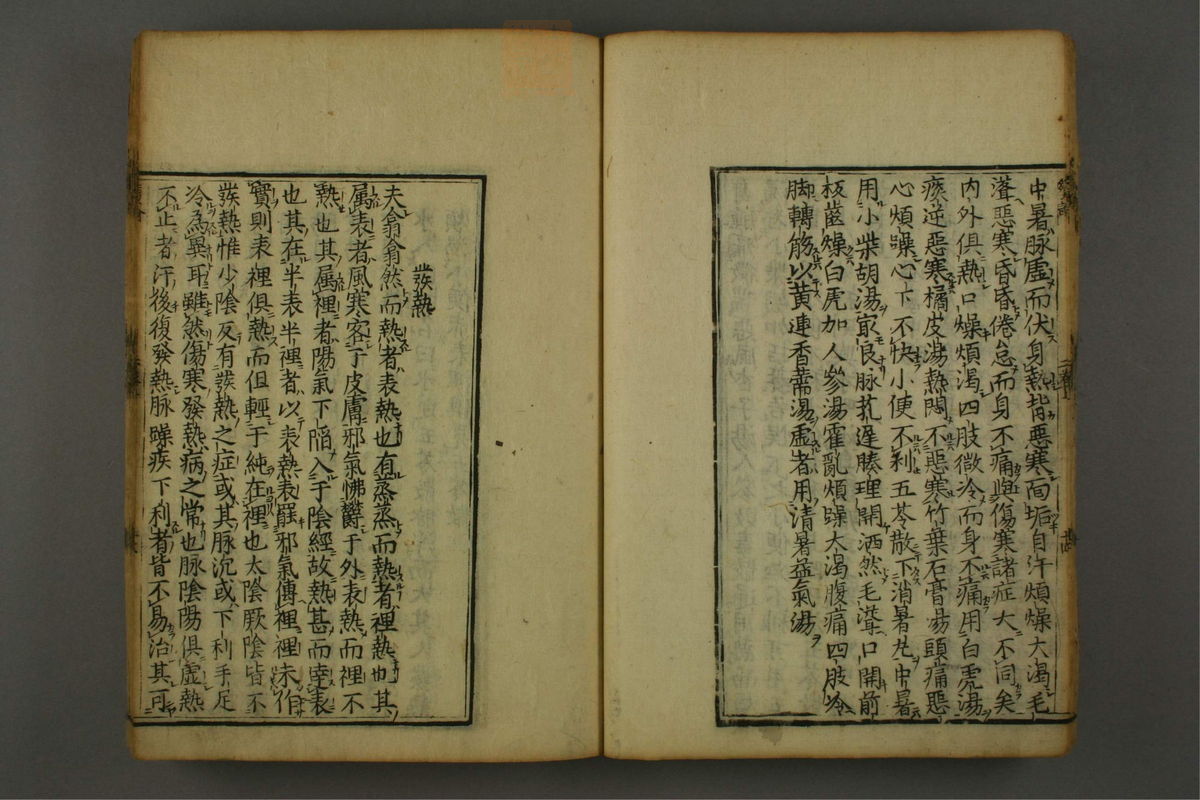 中暑脉虛而伏身熱背惡寒面垢自汗煩燥大渴毛
聳惡寒昏昏倦怠而身不痛與傷寒諸症大不同矣
內外俱熱口燥煩渴四肢微冷而身不痛用白虎湯
痰逆惡寒橘皮湯熱悶不惡寒竹葉石膏湯頭痛惡
心煩躁心下不快小便不利五苓散下消暑丸中暑
用小柴胡湯最良脉芤遲腠理開洒然毛聳口開前
板齒燥白虎加人參湯霍亂煩躁大渴腹痛四肢冷
脚轉筋以黃連香薷湯虛者用清暑益氣湯
發熱
夫翕翕然而熱者表熱也有蒸蒸而熱者裡熱也其
属表者風寒客于皮膚邪氣怫鬱于外表熱而裡不
熱也其属裡者陽氣下陷入于陰經故熱甚而連表
也其在半表半裡者以表熱表罷邪氣傳裡裡未作
實則表裡俱熱而但輕于純在裡也太陰厥陰皆不
發熱惟少陰反有發熱之症或其脉沉或下利手足
冷為異耳雖然傷寒發熱病之常也脉陰陽俱虛熱
不止者汗後復發熱脉躁疾下利者皆不易治其可